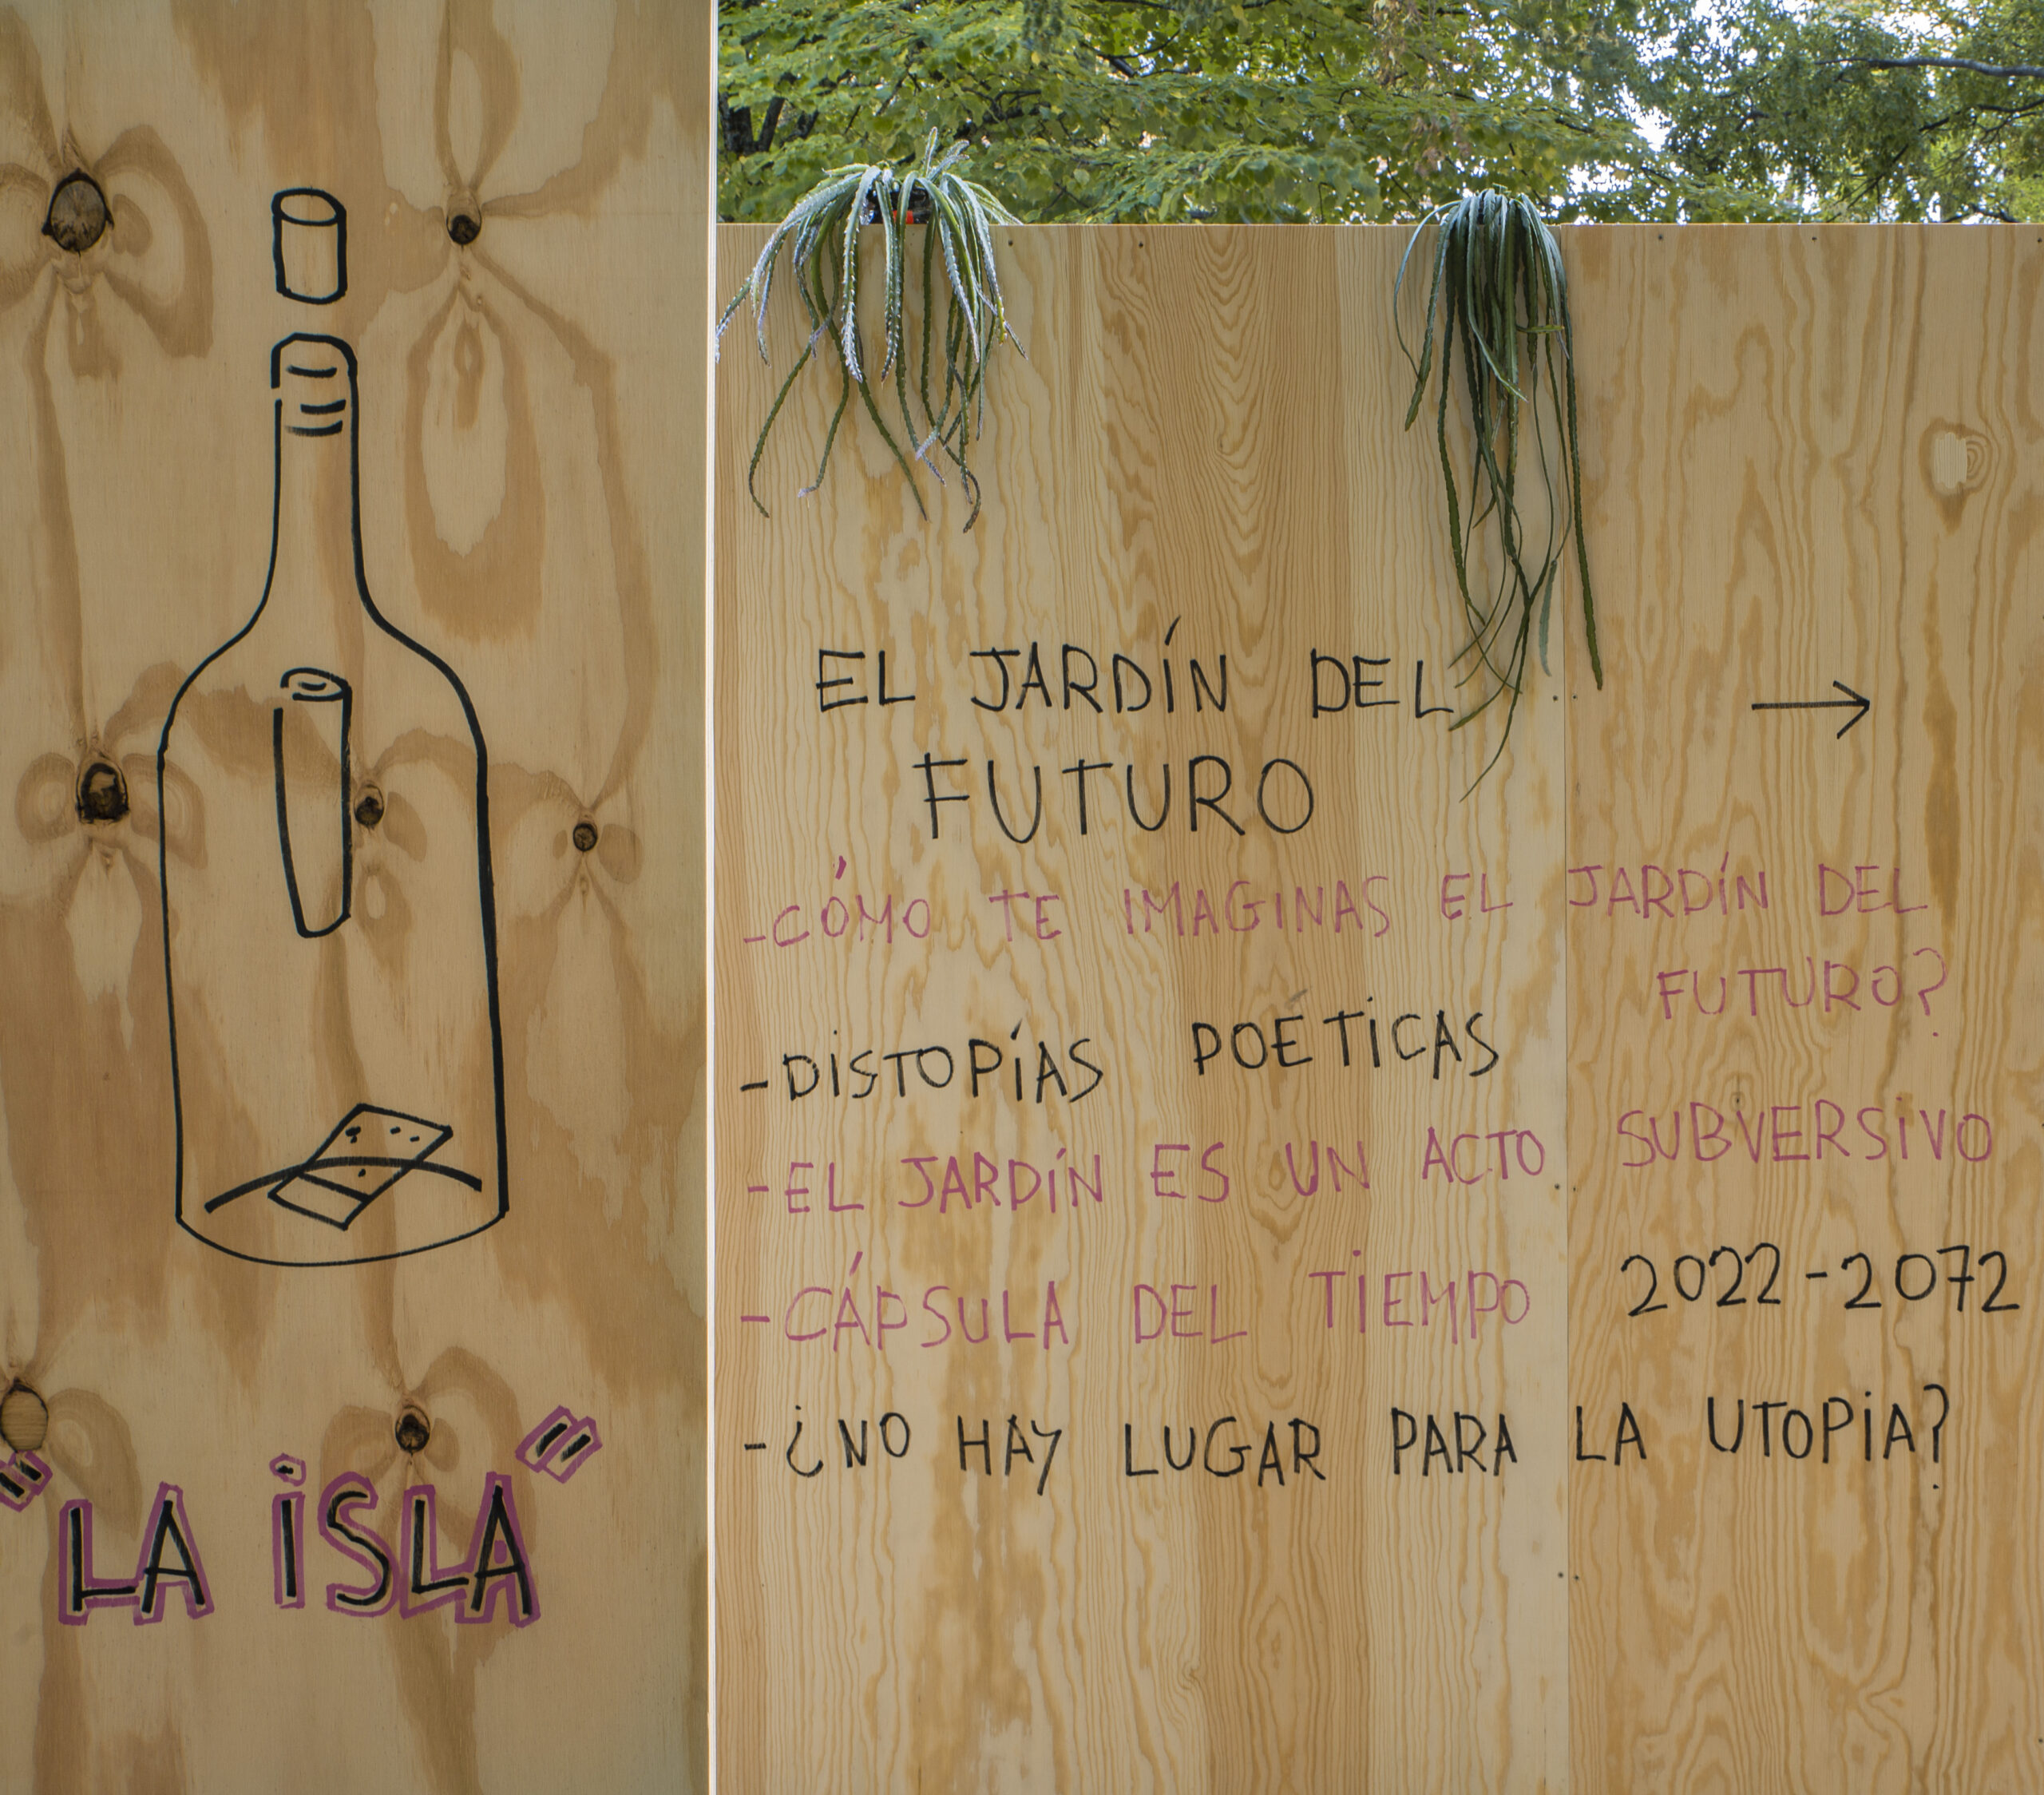 "LA ISLA"
EL JARDÍN DEL →
FUTURO
-CÓMO TE IMAGINAS EL JARDÍN DEL
FUTURO?
-DISTOPÍAS POÉTICAS
-EL JARDÍN ES UN ACTO SUBVERSIVO
-CÁPSULA DEL TIEMPO 2022-2072
-¿NO HAY LUGAR PARA LA UTOPIA?